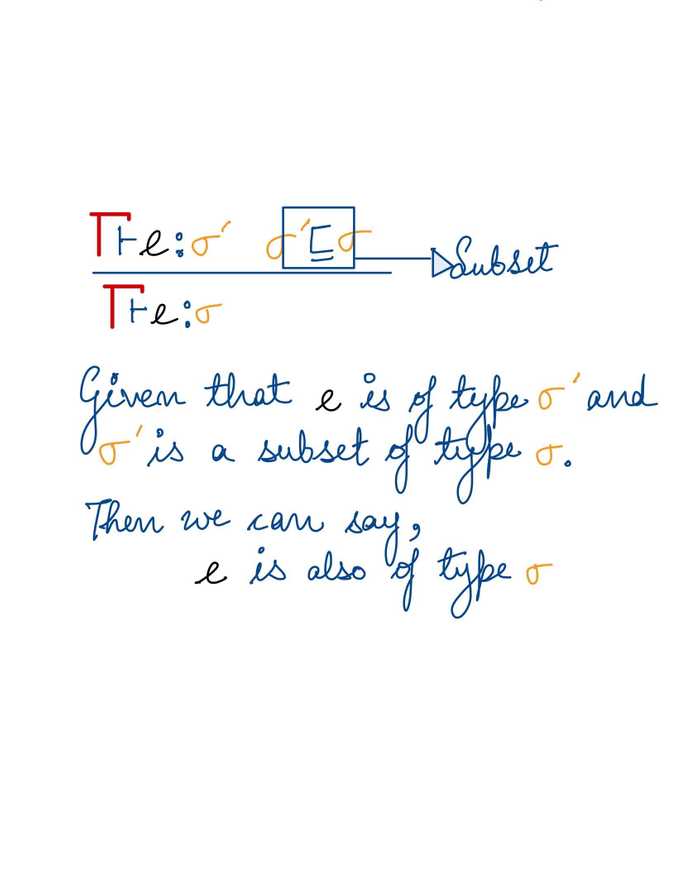 Γ⊢e:σ′ σ′⊑σ Subset
Γ⊢e:σ
Given that e is of type σ′ and
σ′ is a subset of type σ.
Then we can say,
e is also of type σ